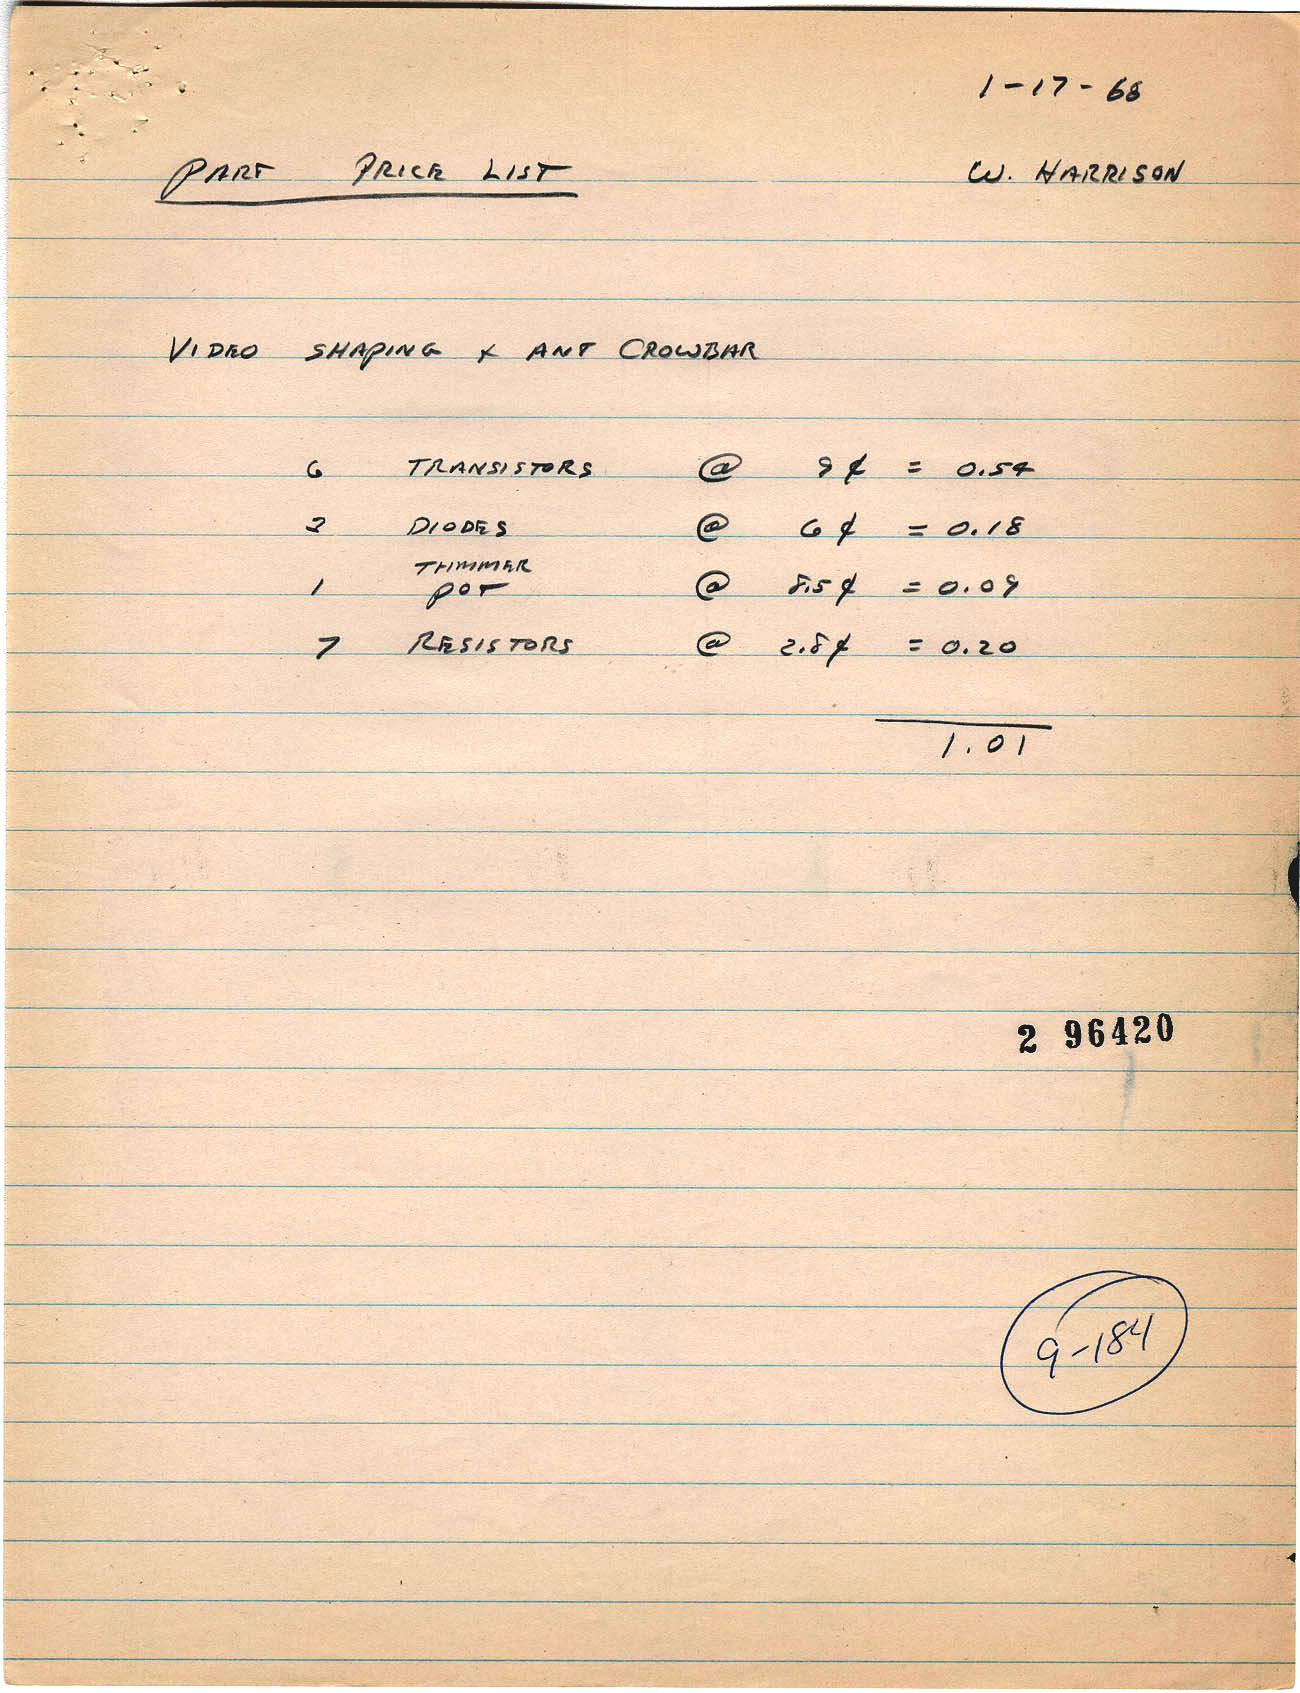 1-17-68
PART PRICE LIST W. HARRISON
VIDEO SHAPING + ANT CROWBAR
6 TRANSISTORS @ 9¢ = 0.54
3 DIODES @ 6¢ = 0.18
TRIMMER
1 POT @ 8.5¢ = 0.09
7 RESISTORS @ 2.8¢ = 0.20
1.01
2 96420
9-184